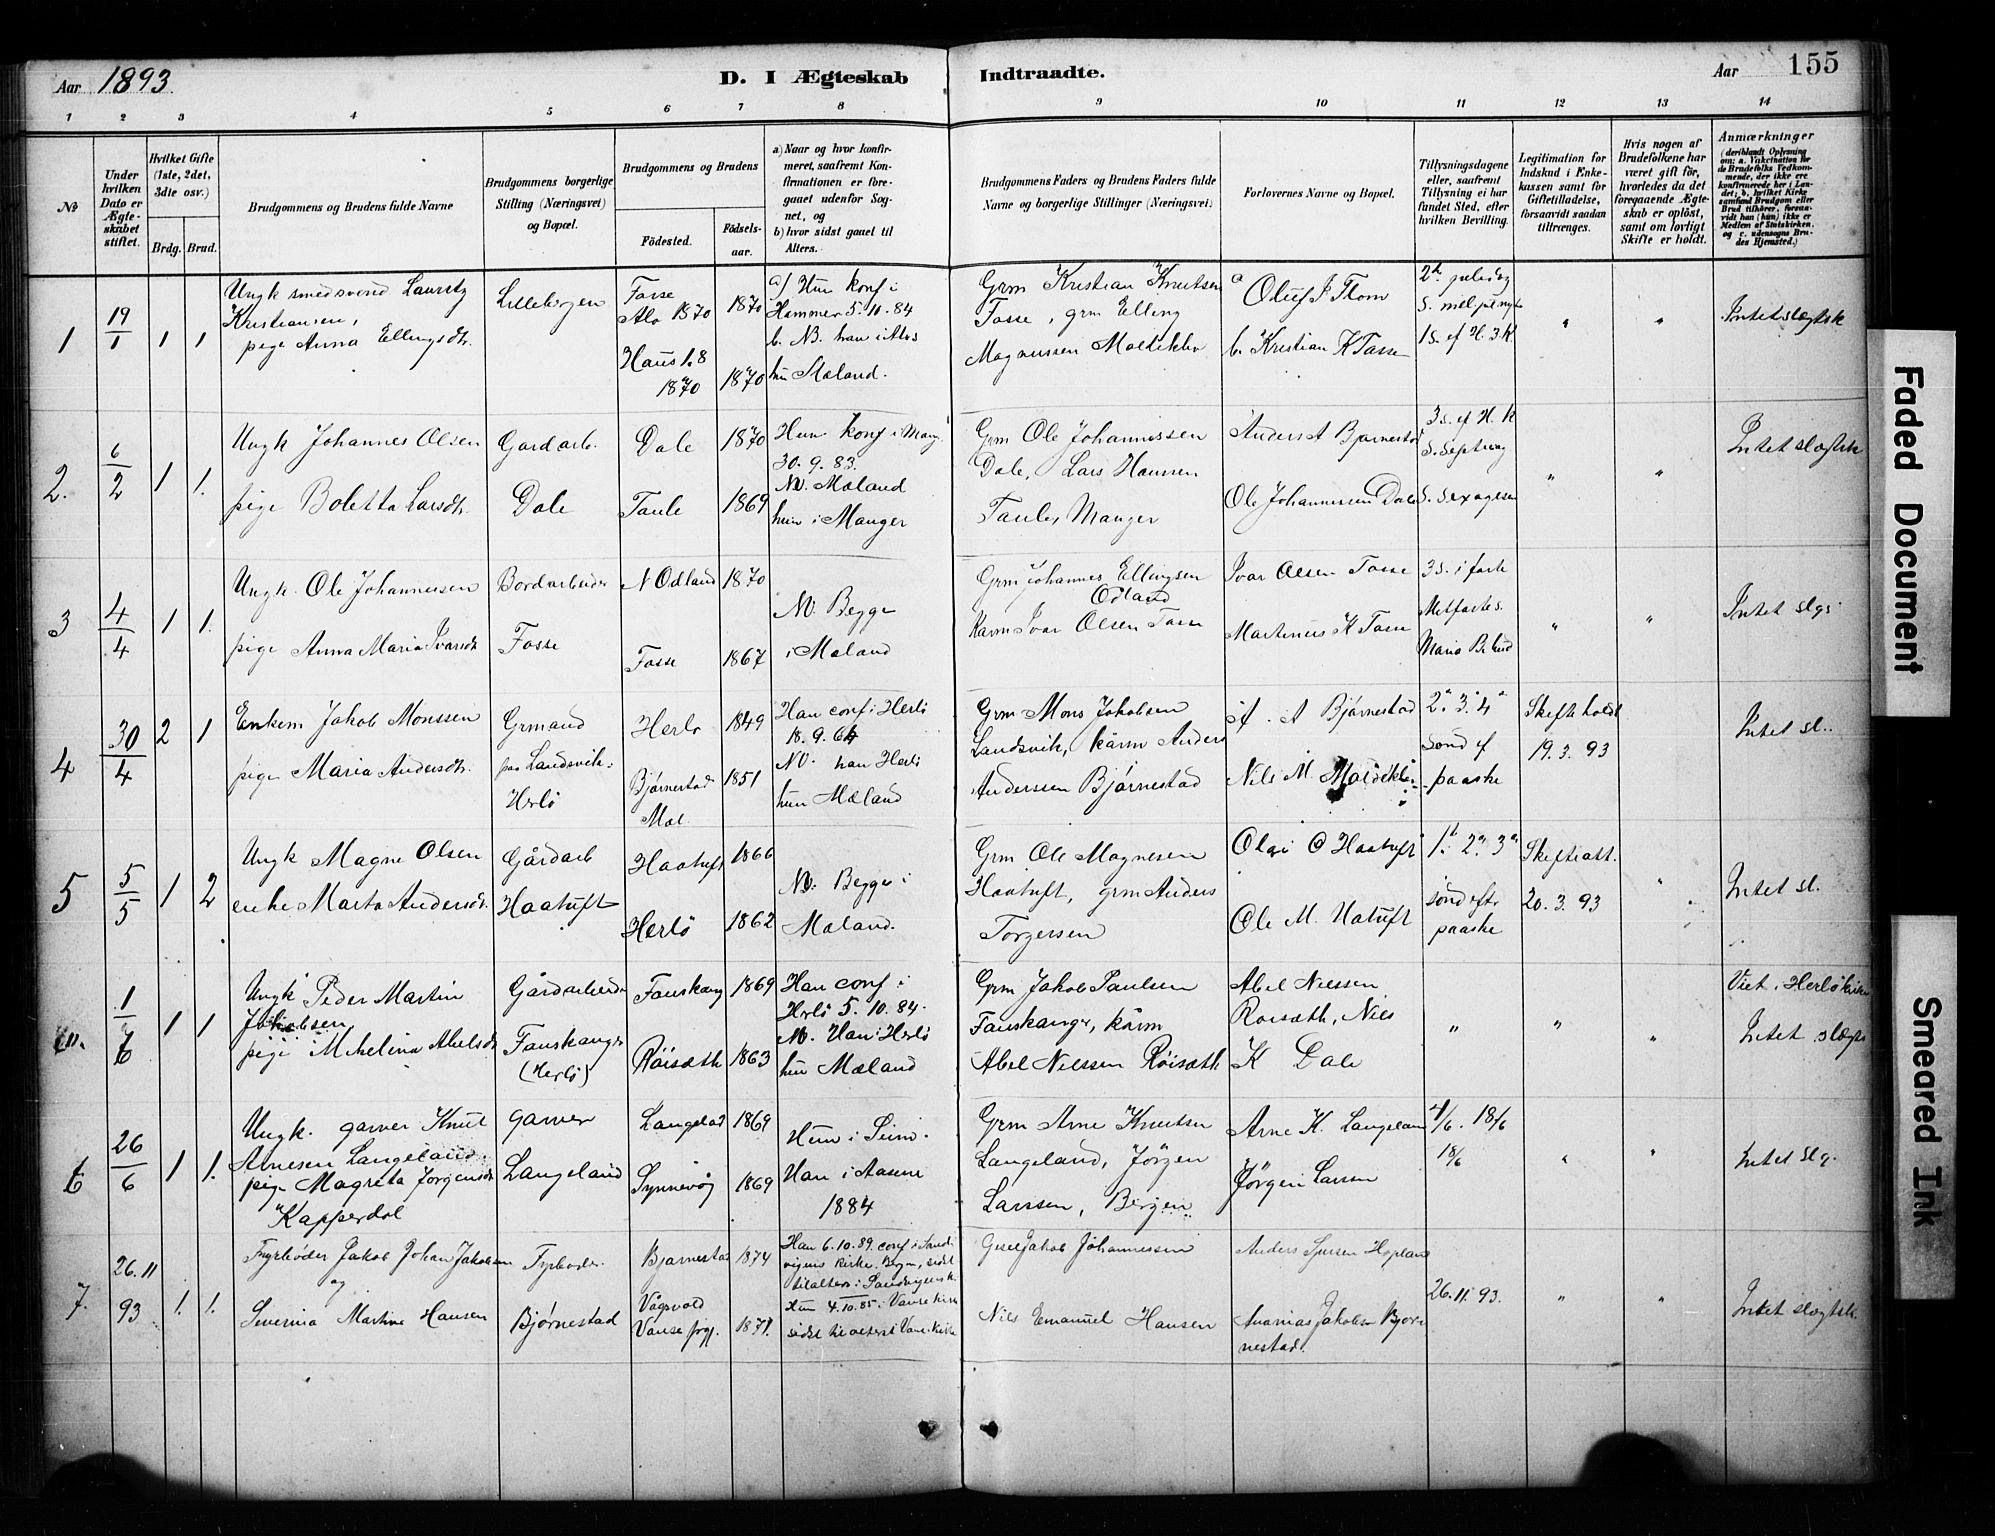 Aar 1893.
D. I Ægteskab Indtraadte.
Aar 155
1 2 3 4 5 6 7 8 9 10 11 12 13 14
№
Under hvilken Dato er Ægteskabet stiftet.
Hvilket Gifte (1ste, 2det, 3die osv.)
Brdg. Brud.
Brudgommens og Brudens fulde Navne
Brudgommens borgerlige Stilling (Næringsvei) og Bopæl.
Brudgommens og Brudens
Födested. Födselsaar.
a) Naar og hvor konfirmeret, saafremt Konfirmationen er foregaaet udenfor Sognet, og
b) hvor sidst gaaet til Alters.
Brudgommens Faders og Brudens Faders fulde Navne og borgerlige Stillinger (Næringsvei)
Forlovernes Navne og Bopæl.
Tillysningsdagene eller, saafremt Tillysning ei har fundet Sted, efter hvilken Bevilling.
Legitimation for Indskud i Enkekassen samt for Giftetilladelse, forsaavidt saadan tiltrænges.
Hvis nogen af Brudefolkene har været gift för, hvorledes da det foregaaende Ægteskab er oplöst, samt om lovligt Skifte er holdt.
Anmærkninger
(deriblandt Oplysning om: a. Vakcination for de Brudefolks Vedkommende, der ikke ere konfirmerede her i Landet; b. hvilket Kirkesamfund Brudgom eller Brud tilhörer, forsaavidt han (hun) ikke er Medlem af Statskirken, og c. udensogns Brudes Hjemsted.)
1 19/1 1 1
Ungk smedsvend Lauritz
Kristiansen,
pige Anna Ellingsdt.
Lillebergen
Fosse
Alv 1870 1870
Haus 1.8
1870 1870
a) Hun konf i
Hammer 5.10.84
b. NB. han i Alvs
hun Mæland.
Grm Kristian Knutsen
Fosse, grm Elling
Magnussen
a Oluf J Flom
b. Kristian K Fosse
" "
Intet slægtsk
2. 6/2 1 1.
Ungk Johannes Olsen
pige Boletta Larsdt.
Gardarb.
Dale
Dale 1870
Taule 1869
Hun konf i Mang.
30. 9. 83.
NB. Mæland
hun i Manger
Grm Ole Johannessen
Dale, Lars Hansen
Taule, Manger
Anders A Bjørnestad
Ole Johannessen Dale
3 s. ef H. K
S. Septuag
S. Sexages
" "
Intet slægtsk
3 4/4 1 1.
Ungk. Ole Johannessen
pige Anna Maria Ivarsdt
Bordarbeider
Fosse
N Odland 1870
Fosse 1867
NB. Begge
i Mæland
Grm Johannes Ellingsen
Odland
Kårm Ivar Olsen Fosse
Ivar Olsen Fosse
Martinus K Fosse
3 s. i faste
Midfastes.
Maria Bebud
" "
Intet slgs.
4 30/4 2 1
Enkem Jakob Monssen
pige Maria Andersdt.
Grmand
paa Landsvik
Herlö
Herlö 1849
Bjørnestad 1851
Mæl.
Han conf i Herlö
18. 9. 64
NB. han Herlö
hun Mæland
Grm Mons Jakobsen
Landsvik, kårm Anders
Anderssen Bjørnestad
A. A Bjørnestad
Nils M.
2. 3. 4
sønd ef
paaske
Skifte holdt
19. 3. 93
Intet sl..
5 5/5 1 2
Ungk Magne Olsen
enke Marta Andersdt.
Gårdarb
Haatuft
Haatuft 1866
Herlö 1862
NB. Begge i
Mæland.
Grm Ole Magnesen
Haatuft, grm Anders
Torgersen
Olai O Haatuft
Ole M. Hatuft
1. 2. 3
sønd eft
paaske
Skifteatt.
20. 3. 93
"
Intet sl.
1 1
Ungk Peder Martin
Jakobsen
pige Mikelina Abelsdt
Gårdarbeider
Fauskanger
(Herlö)
Fauskang 1869
Röisæth 1863
Han conf i
Herlö 5. 10. 84.
NB. Han i Herlö
hun Mæland
Grm Jakob Paulsen
Fauskanger, kårm
Abel Nilssen Röisæth
Abel Nilssen
Roisæth, Nils
K Dale
" " "
Viet i Herlö kirke
Intet slægts
6 26/6 1 1.
Ungk. garver Knut
Arnesen Langeland
pige Magreta Jörgensdt
Kapperdal
garver
Langeland
Langeland 1869
Synnevåg 1869
Hun i Seim.
Han i Aasene
1884
Grm Arne Knutsen
Langeland, Jörgen
Larssen, Bergen
Arne K. Langeland
Jörgen Larsen
4/6. 18/6
18/6
" "
Intet slg.
7. 26. 11
93 1. 1.
Fyrbøder Jakob Johan Jakobsen
og
Severina Martine Hansen
Fyrbøder.
Bjørnestad
Bjørnestad 1874
Vågsvold
Vanse prgj. 1871.
Han 6.10.89. conf i Sand
vigens kirke, Bergen, sidst
tilalters i Sandvigensk.
Hun 4.10.85 i Vanse kirke
sidst tilalters i Vanse kirke
Jakob Johannessen
Nils Emanuel Hansen
Anders Hopland
Ananias Jakobsen Bjør
nestad.
26. 11. 93.
" "
Intet slægtsk.
Faded Document
Smeared Ink